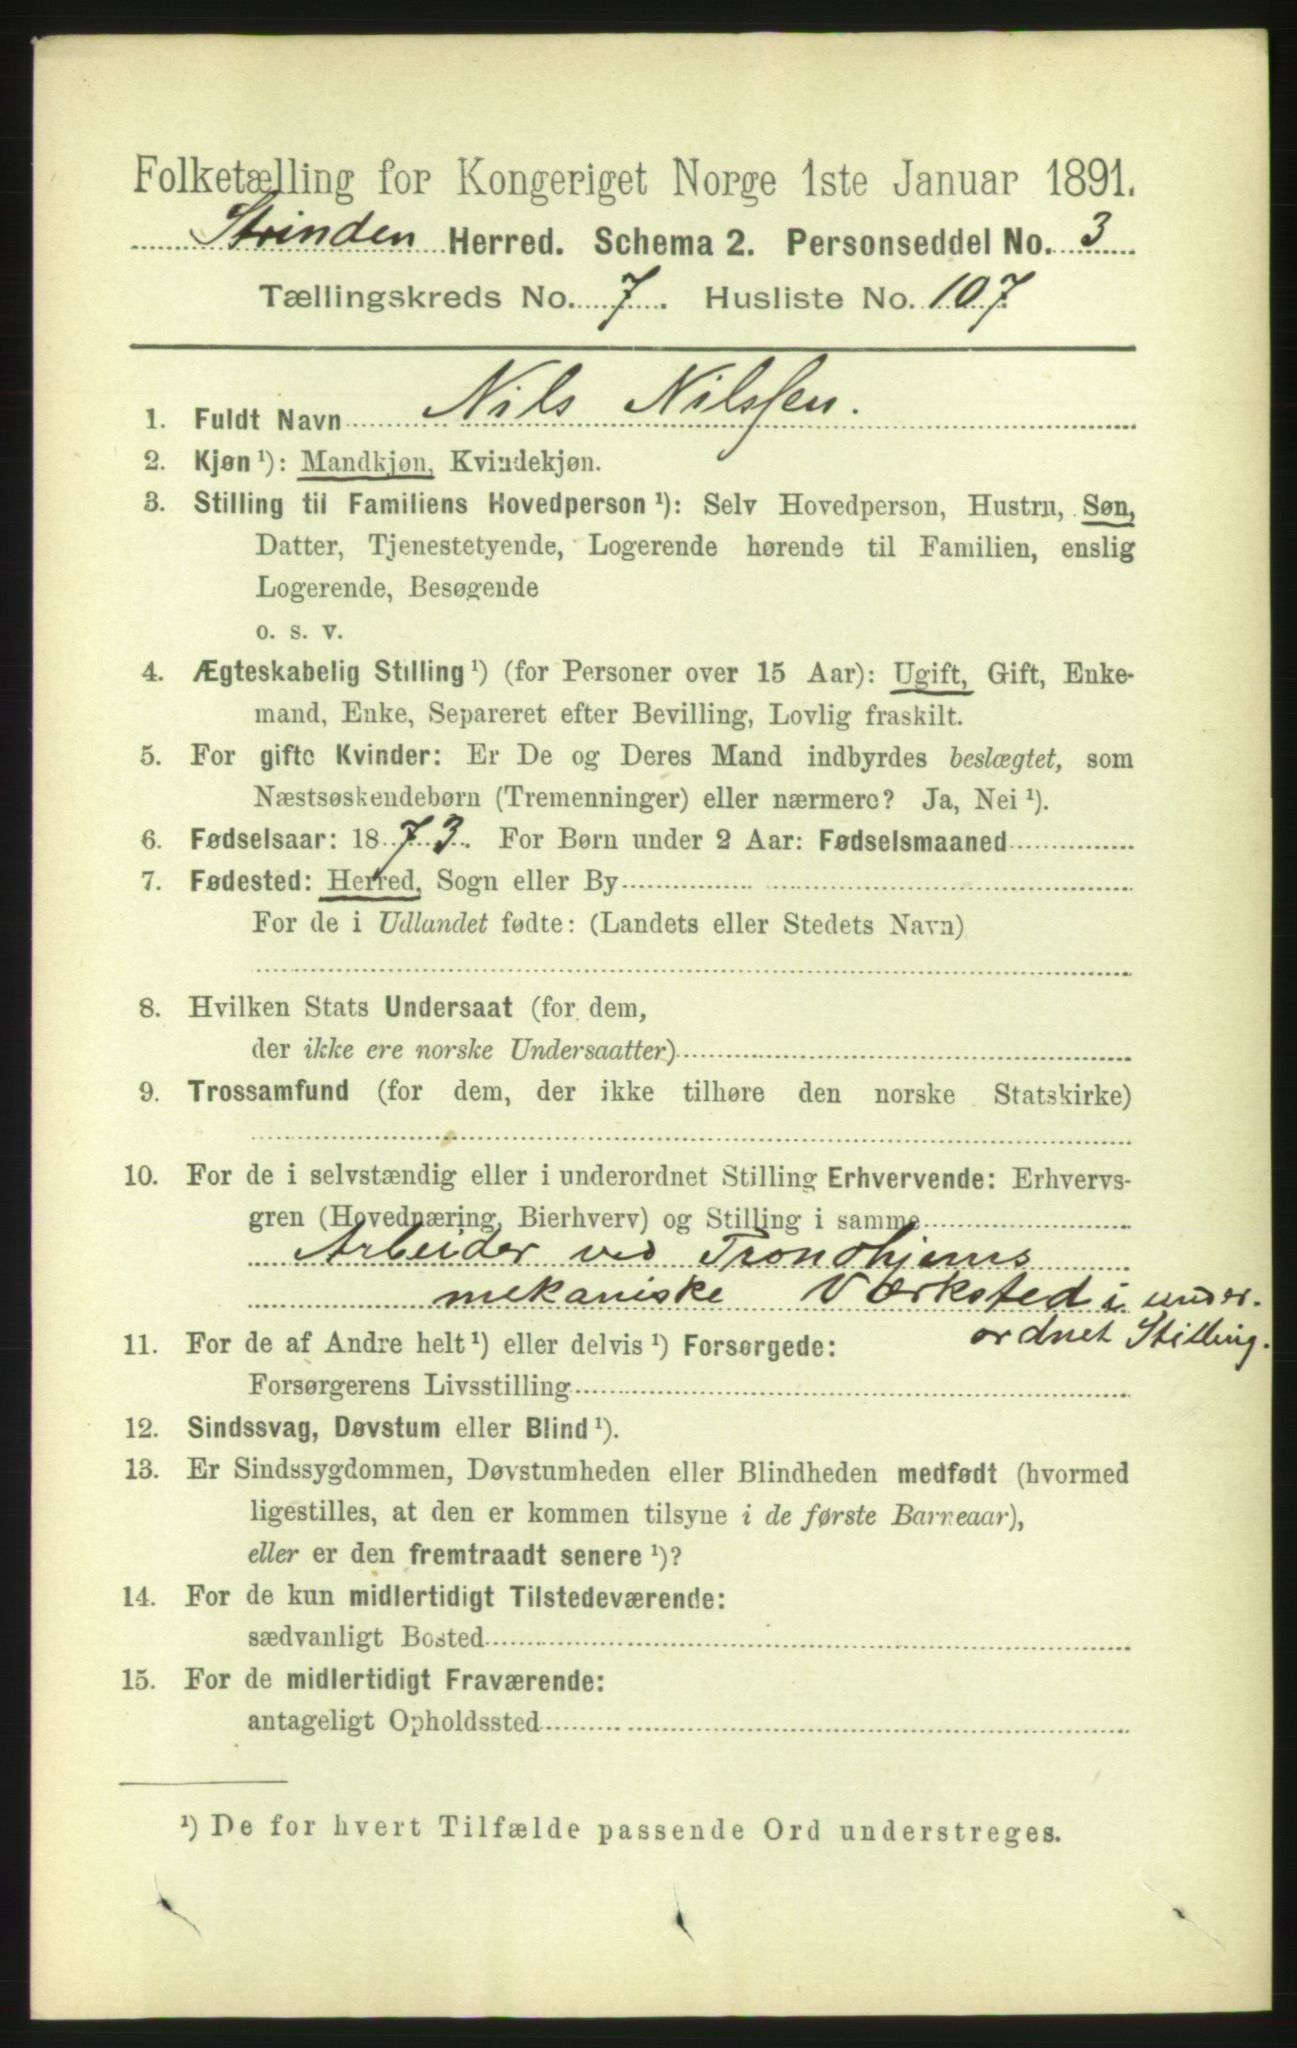 Folketælling for Kongeriget Norge 1ste Januar 1891.
Strinden Herred. Schema 2. Personseddel No. 3
Tællingskreds No. 7. Husliste No. 107
1. Fuldt Navn Nils Nilssen.
2. Kjøn ¹): Mandkjøn, Kvindekjøn.
3. Stilling til Familiens Hovedperson ¹): Selv Hovedperson, Hustru, Søn,
Datter, Tjenestetyende, Logerende hørende til Familien, enslig
Logerende, Besøgende
o. s. v.
4. Ægteskabelig Stilling ¹) (for Personer over 15 Aar): Ugift, Gift, Enke-
mand, Enke, Separeret efter Bevilling, Lovlig fraskilt.
5. For gifte Kvinder: Er De og Deres Mand indbyrdes beslægtet, som
Næstsøskendebørn (Tremenninger) eller nærmere? Ja, Nei ¹).
6. Fødselsaar: 1873. For Børn under 2 Aar: Fødselsmaaned
7. Fødested: Herred, Sogn eller By
For de i Udlandet fødte: (Landets eller Stedets Navn)
8. Hvilken Stats Undersaat (for dem,
der ikke ere norske Undersaatter)
9. Trossamfund (for dem, der ikke tilhøre den norske Statskirke)
10. For de i selvstændig eller i underordnet Stilling Erhvervende: Erhvervs-
gren (Hovednæring, Bierhverv) og Stilling i samme
Arbeider ved Trondhjems
mekaniske Værksted i under-
ordnet Stilling.
11. For de af Andre helt ¹) eller delvis ¹) Forsørgede:
Forsørgerens Livsstilling
12. Sindssvag, Døvstum eller Blind ¹).
13. Er Sindssygdommen, Døvstumheden eller Blindheden medfødt (hvormed
ligestilles, at den er kommen tilsyne i de første Barneaar),
eller er den fremtraadt senere ¹)?
14. For de kun midlertidigt Tilstedeværende:
sædvanligt Bosted
15. For de midlertidigt Fraværende:
antageligt Opholdssted
¹) De for hvert Tilfælde passende Ord understreges.